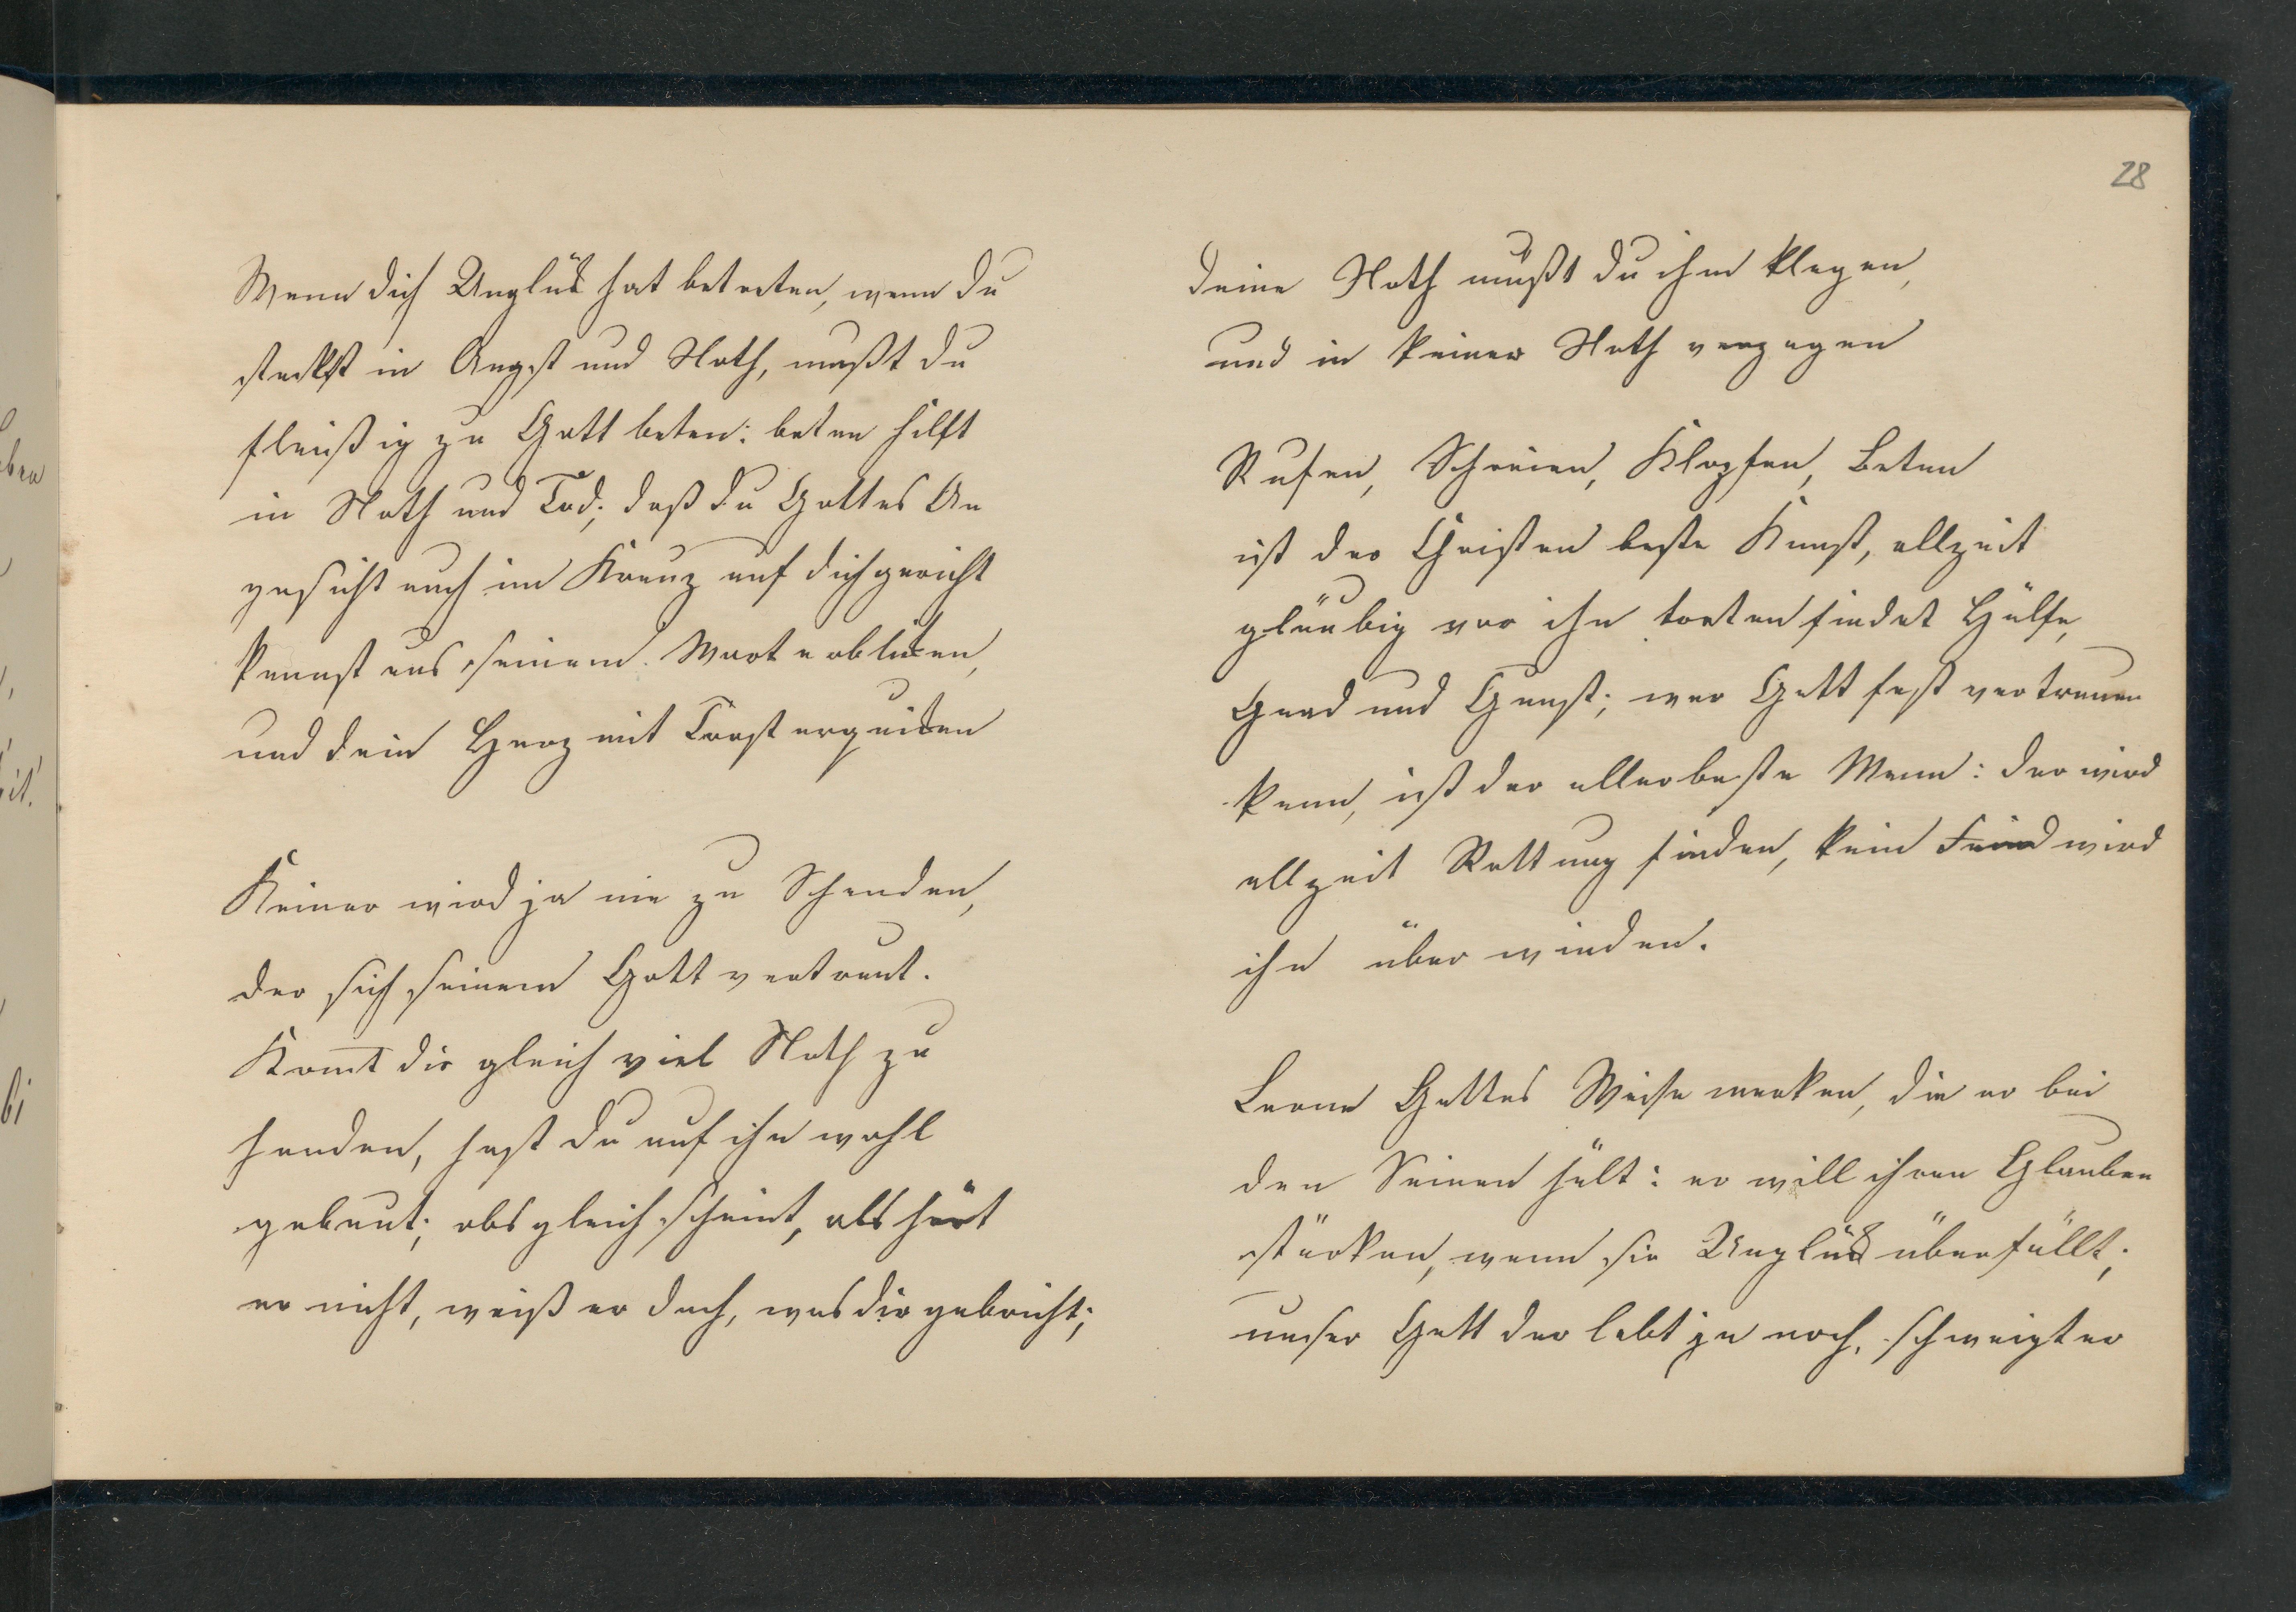 28
Wenn dich Unglück hat betreten, wenn du
steckst in Angst und Noth, mußt du
fleißig zu Gott beten: beten hilft
in Noth und Tod; daß du Gottes An
gesicht auch im Kreuz auf dich gericht
kannst aus seinem Wort erblicken,
und dein Herz mit Trost erquicken
Keiner wird ja nie zu Schanden,
der sich seinem Gott vertraut.
Komt dir gleich viel Noth zu
handen, hast du auf ihn wohl
gebaut; obs gleich scheint, als hört
er nicht, weiß er doch, was dir gebricht;
deine Noth mußt du ihm klagen,
und in keiner Noth verzagen
Rufen, Schreien, Klopfen, Beten
ist der Christen beste Kunst, allzeit
gläubig vor ihn treten findet Hülfe,
Gnad und Gunst; wer Gott fest vertrauen
kann, ist der allerbeste Mann: der wird
allzeit Rettung finden, kein Feind wird
ihn über winden.
Lerne Gottes Weise merken, die er bei
den Seinen hält: er will ihren Glauben
stärken, wenn sie Unglück überfällt;
unser Gott der lebt ja noch, schweigt er